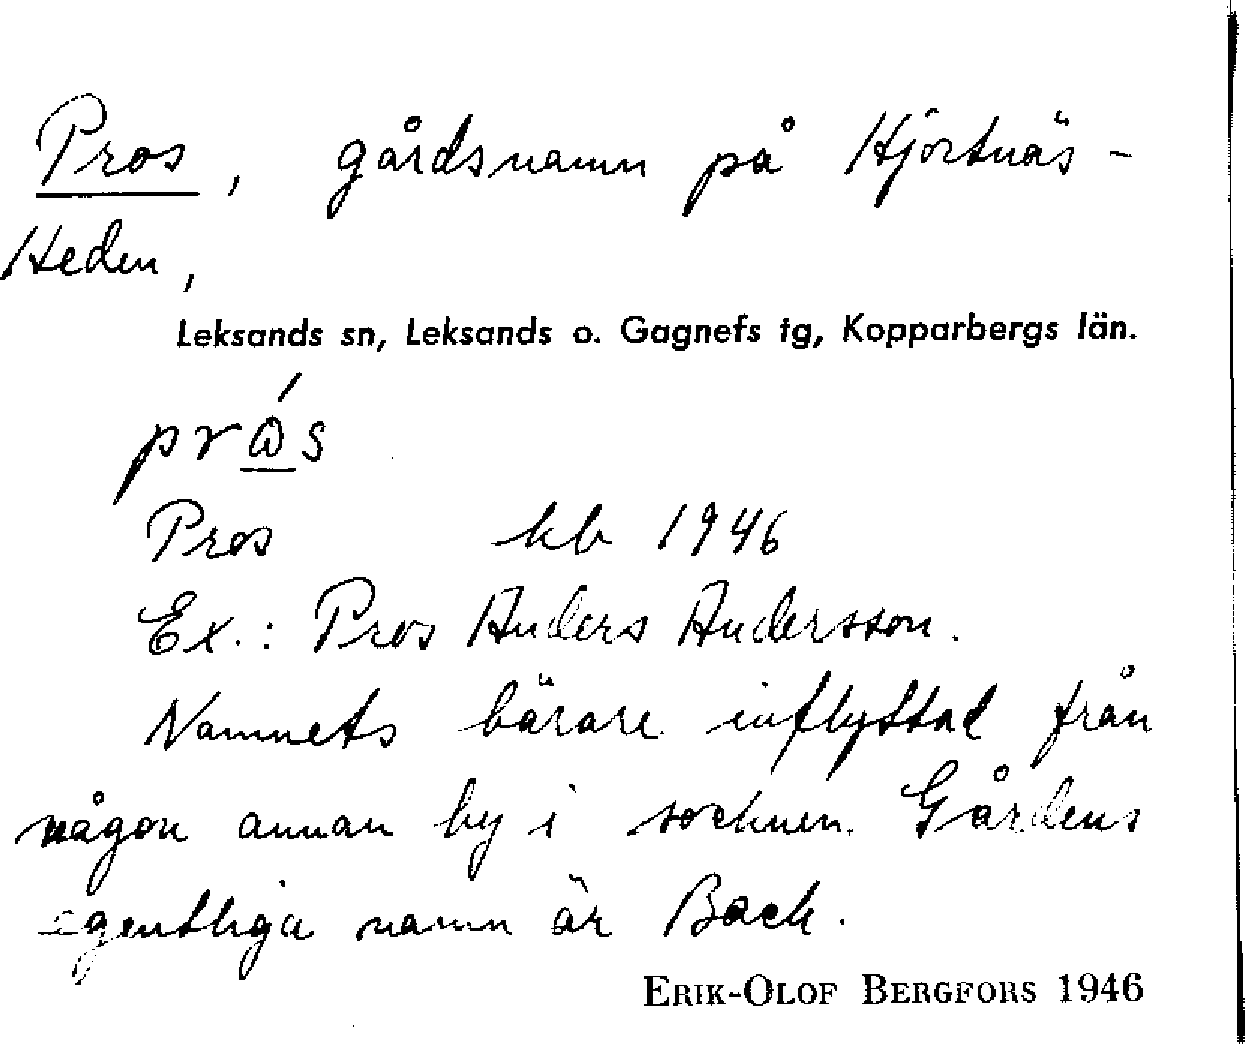 Pros, gårdsnamn på Hjortnäs-
Heden,
Leksands sn, Leksands o. Gagnefs tg, Kopparbergs län.
Pros kb 1946
Ex.: Pros Anders Andersson.
Namnets bärare inflyttad från
någon annan by i socknen. Gårdens
egentliga namn är Back.
ERIK-OLOF BERGFORS 1946